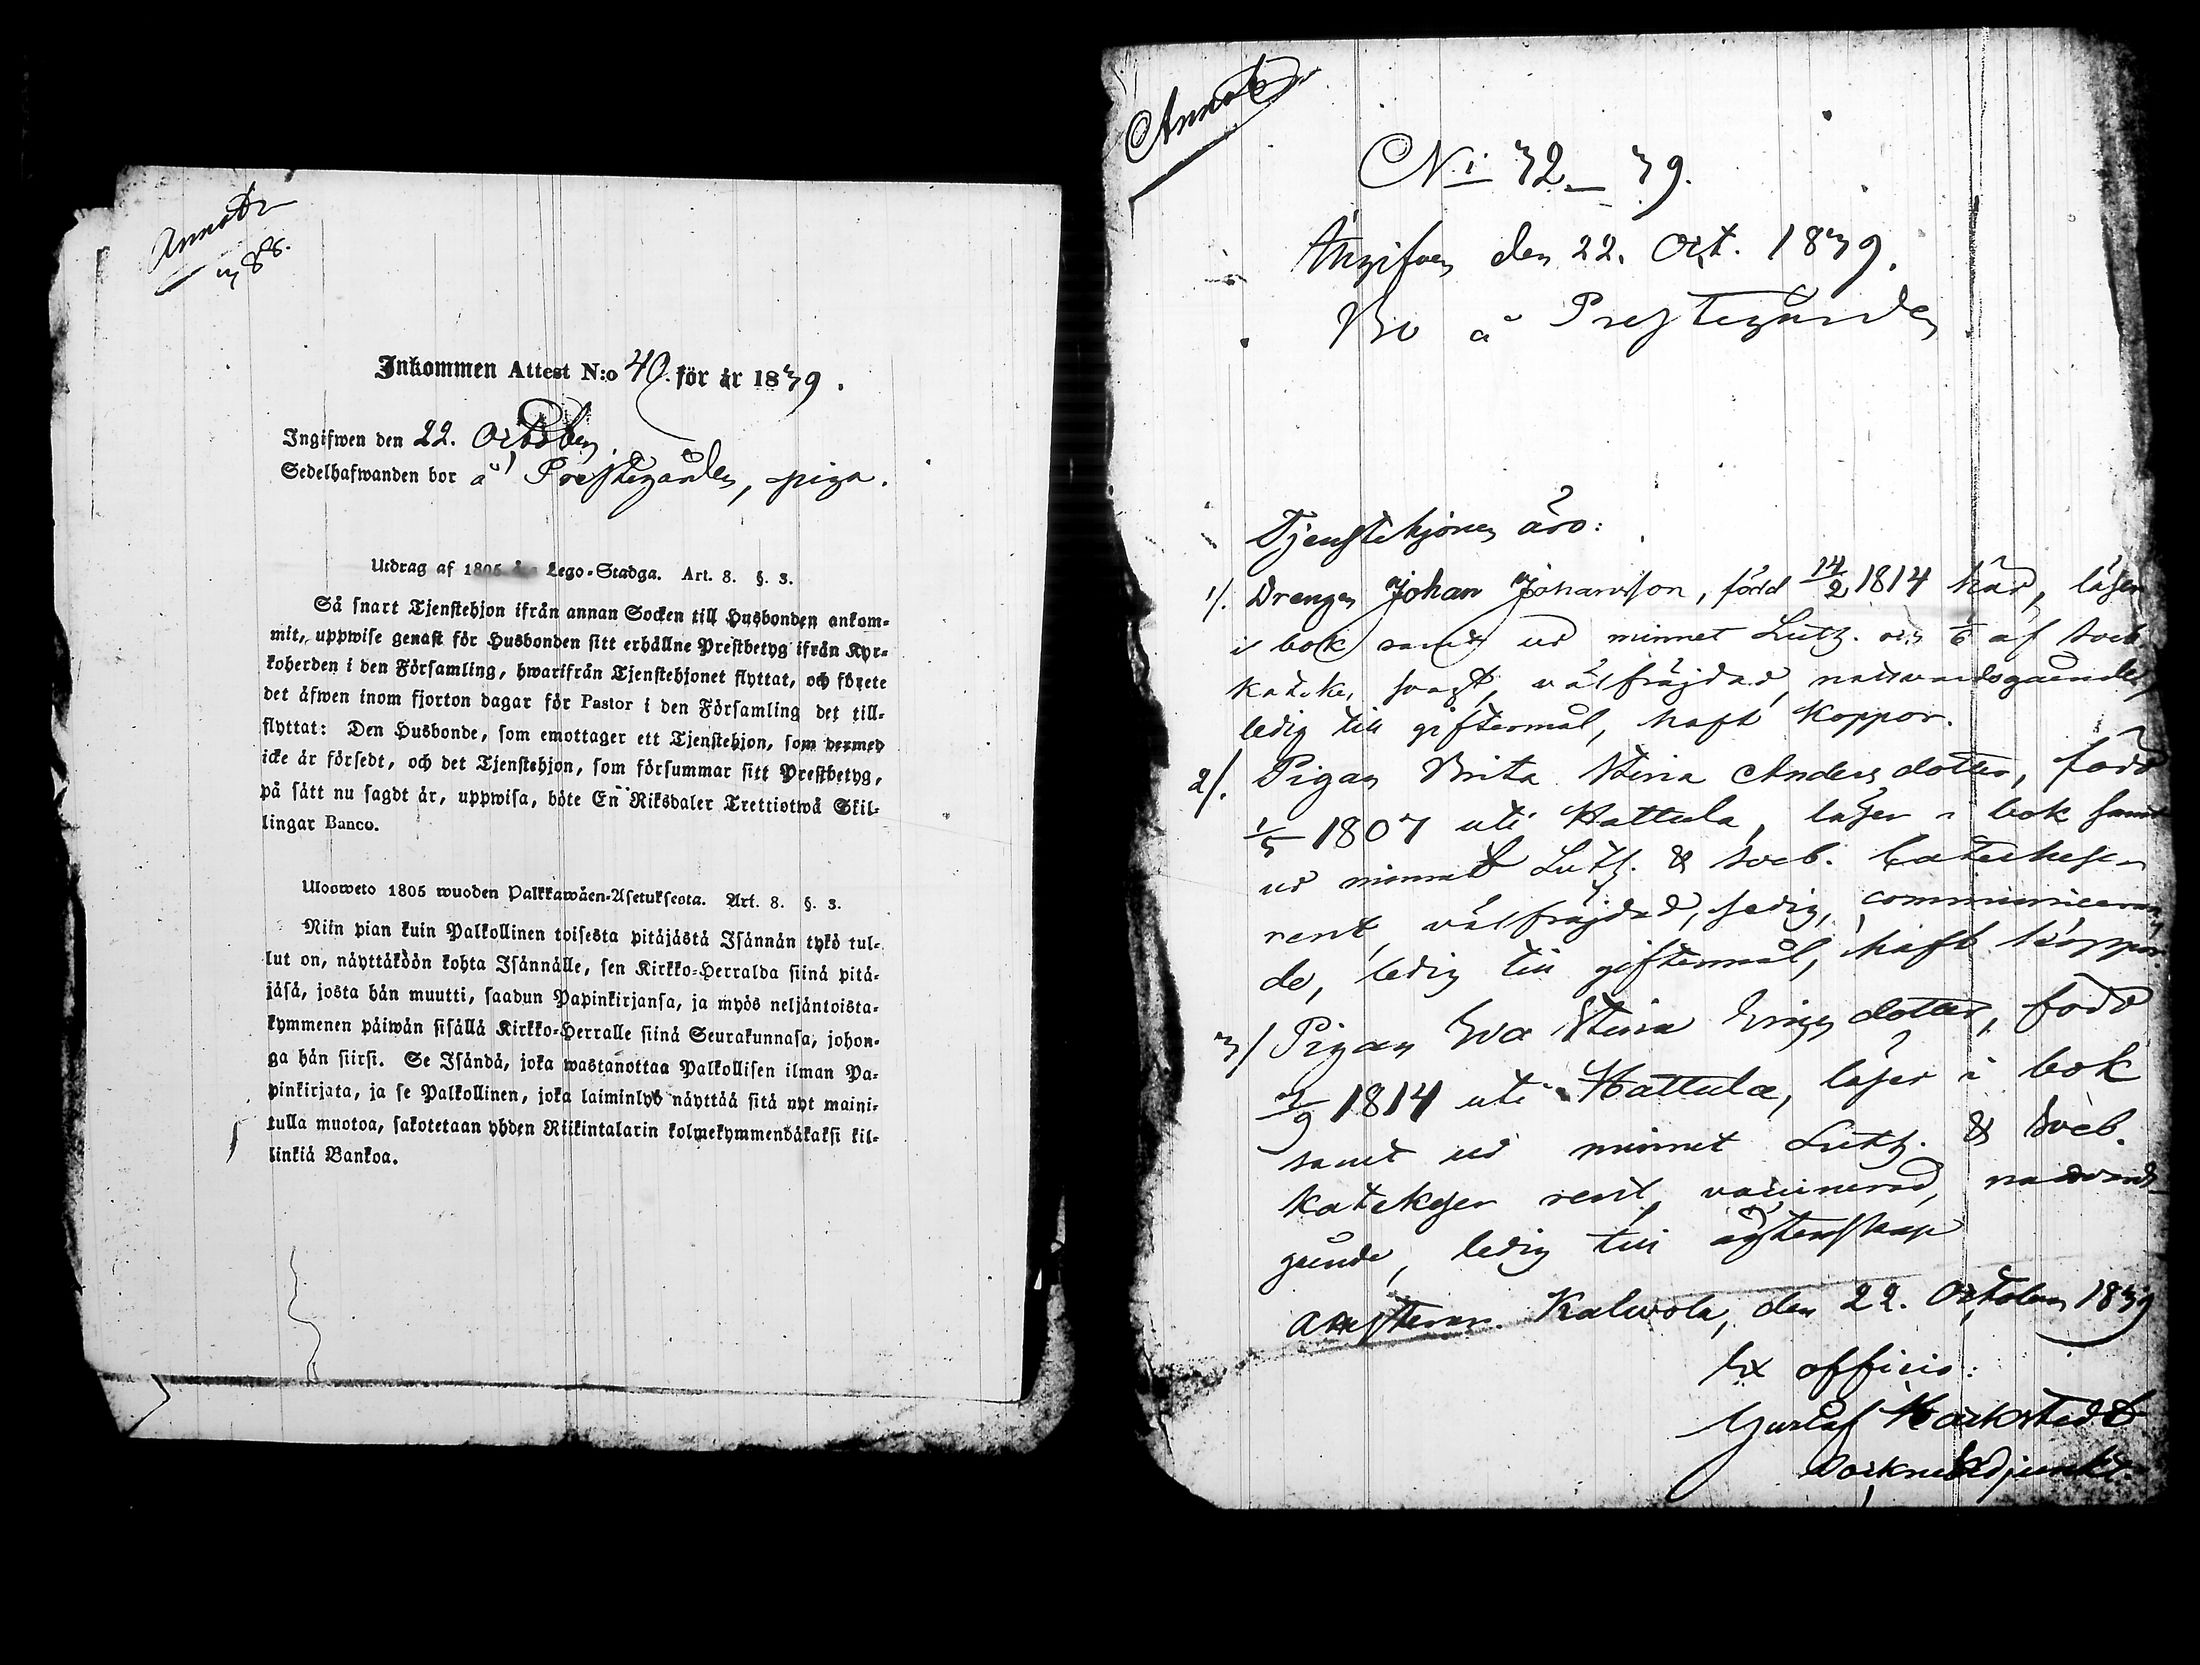 Annot:
388.
Inkommen Attest N:o 40. för år 1839.
Ingifwen den 22. October
Sedelhafwanden bor å Prestegården, piga.
Utdrag af 1805 års Lego-Stadga. Art. 8. §. 3.
Så snart Tjenstehjon ifrån annan Socken till Husbonden ankom-
mit, uppwise genast för Husbonden sitt erhållne Prestbetyg ifrån Kyr-
koherden i den Församling, hwarifrån Tjenstehjonet flyttat, och förete
det äfwen inom fjorton dagar för Pastor i den Församling det till-
flyttat: Den Husbonde, som emottager ett Tjenstehjon, som dermed
icke är försedt, och det Tjenstehjon, som försummar sitt Prestbetyg,
på sätt nu sagdt är, uppwisa, böte En Riksdaler Trettiotwå Skil-
lingar Banco.
Ulosweto 1805 wuoden Palkkawäen-Asetuksesta. Art. 8. §. 3.
Niin pian kuin Palkollinen toisesta pitäjästä Isännän tykö tul-
lut on, näyttäköön kohta Isännälle, sen Kirkko-Herralda siinä pitä-
jäsä, josta hän muutti, saadun Papinkirjansa, ja myös neljäntoista-
kymmenen päiwän sisällä Kirkko-Herralle siinä Seurakunnasa, johon-
ga hän siirsi. Se Isändä, joka wastanottaa Palkollisen ilman Pa-
pinkirjata, ja se Palkollinen, joka laiminlyö näyttää sitä nyt maini-
tulla muotoa, sakotetaan yhden Riikintalarin kolmekymmendäkaksi kil-
linkiä Bankoa.
Annot:
N:i 32_39.
Ingifven den 22. Oct. 1839.
Bo å Prestegården
Tjenstehjonen äro:
1/. Drengen Johan Johansson, född 14/2 1814 här, läser
i bok samt ur minnet Luth. och af Sveb.
katekes svagt, välfräjdad, nattvardsgående,
ledig till giftermål, haft koppor.
2/. Pigan Brita Stina Andersdotter, född
1/5 1807 uti Hattula, läser i bok samt
ur minnet Luth. & Sveb. Catecheser
rent, välfräjdad, sedig, communiceran-
de, ledig till giftermål, haft koppor.
3/ Pigan Eva Stina Ericsdotter, född
3/9 1814 uti Hattula, läser i bok
samt ur minnet Luth. & Sveb.
katekeser rent, vaccinerad, nattvards-
gående, ledig till ägtenskap
attesterar. Kalwola, den 22. October 1839
Ex officio:
Gustaf
Sockneadjunkt.